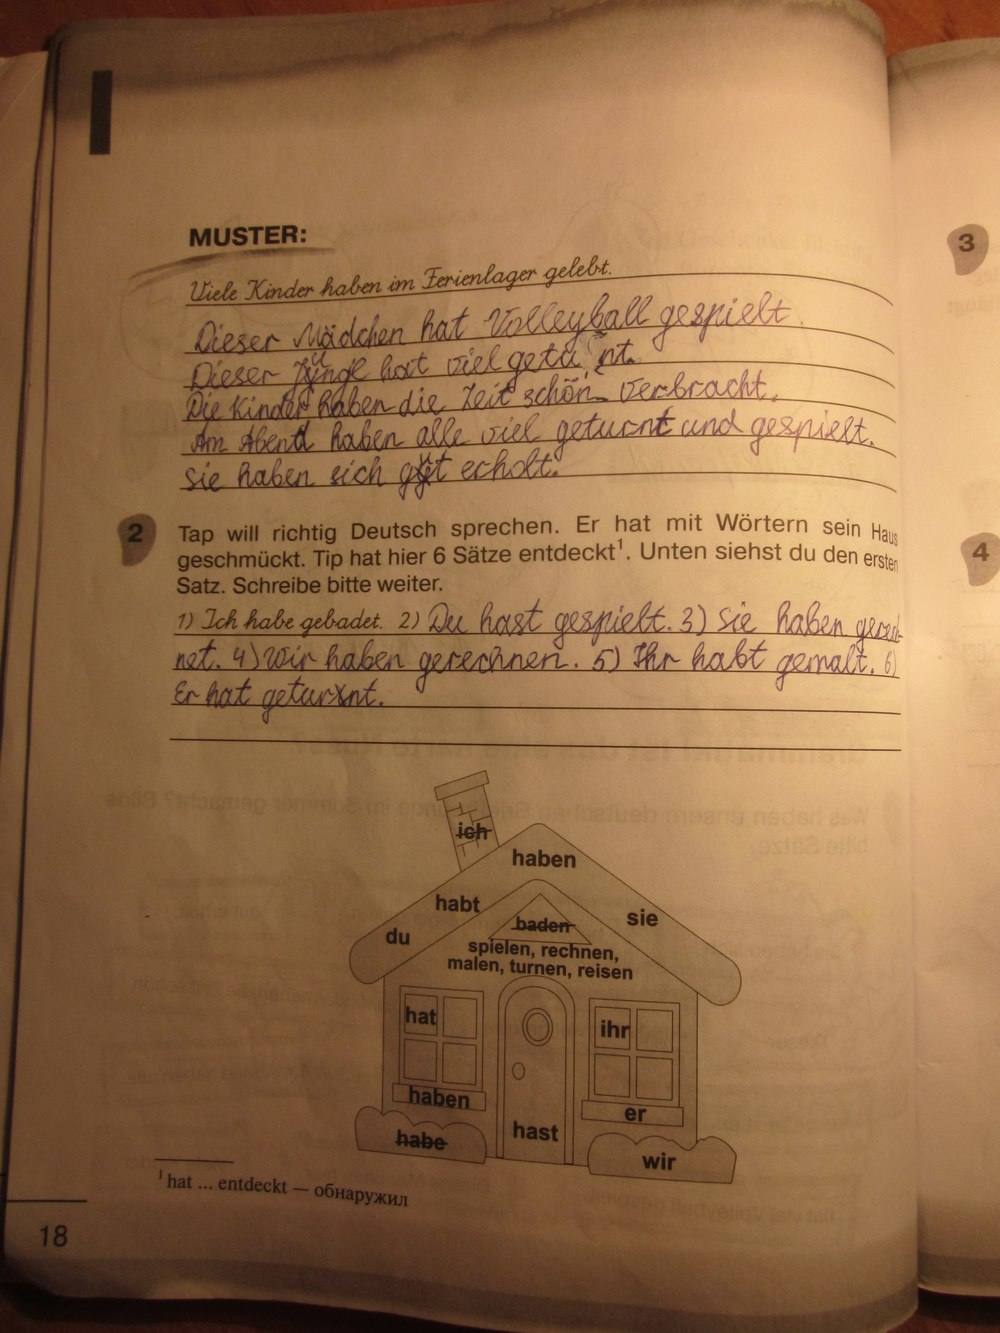 MUSTER:
Viele Kinder haben im Ferienlager gelebt.
Dieser Mädchen hat Volleyball gespielt.
Dieser Junge hat viel getunt.
Die Kinder haben die Zeit schön verbracht.
Am Abend haben alle viel geturnt und gespielt.
Sie haben sich gut erholt.
2 Tap will richtig Deutsch sprechen. Er hat mit Wörtern sein Haus
geschmückt. Tip hat hier 6 Sätze entdeckt¹. Unten siehst du den ersten
Satz. Schreibe bitte weiter.
1) Ich habe gebadet. 2) Du hast gespielt. 3) Sie haben gerech-
net. 4) Wir haben gerechnen. 5) Ihr habt gemalt. 6)
Er hat geturnt.
ich
haben
habt
sie
du
baden
spielen, rechnen,
malen, turnen, reisen
hat
ihr
haben
er
habe
hast
wir
¹ hat ... entdeckt — обнаружил
18
3
4